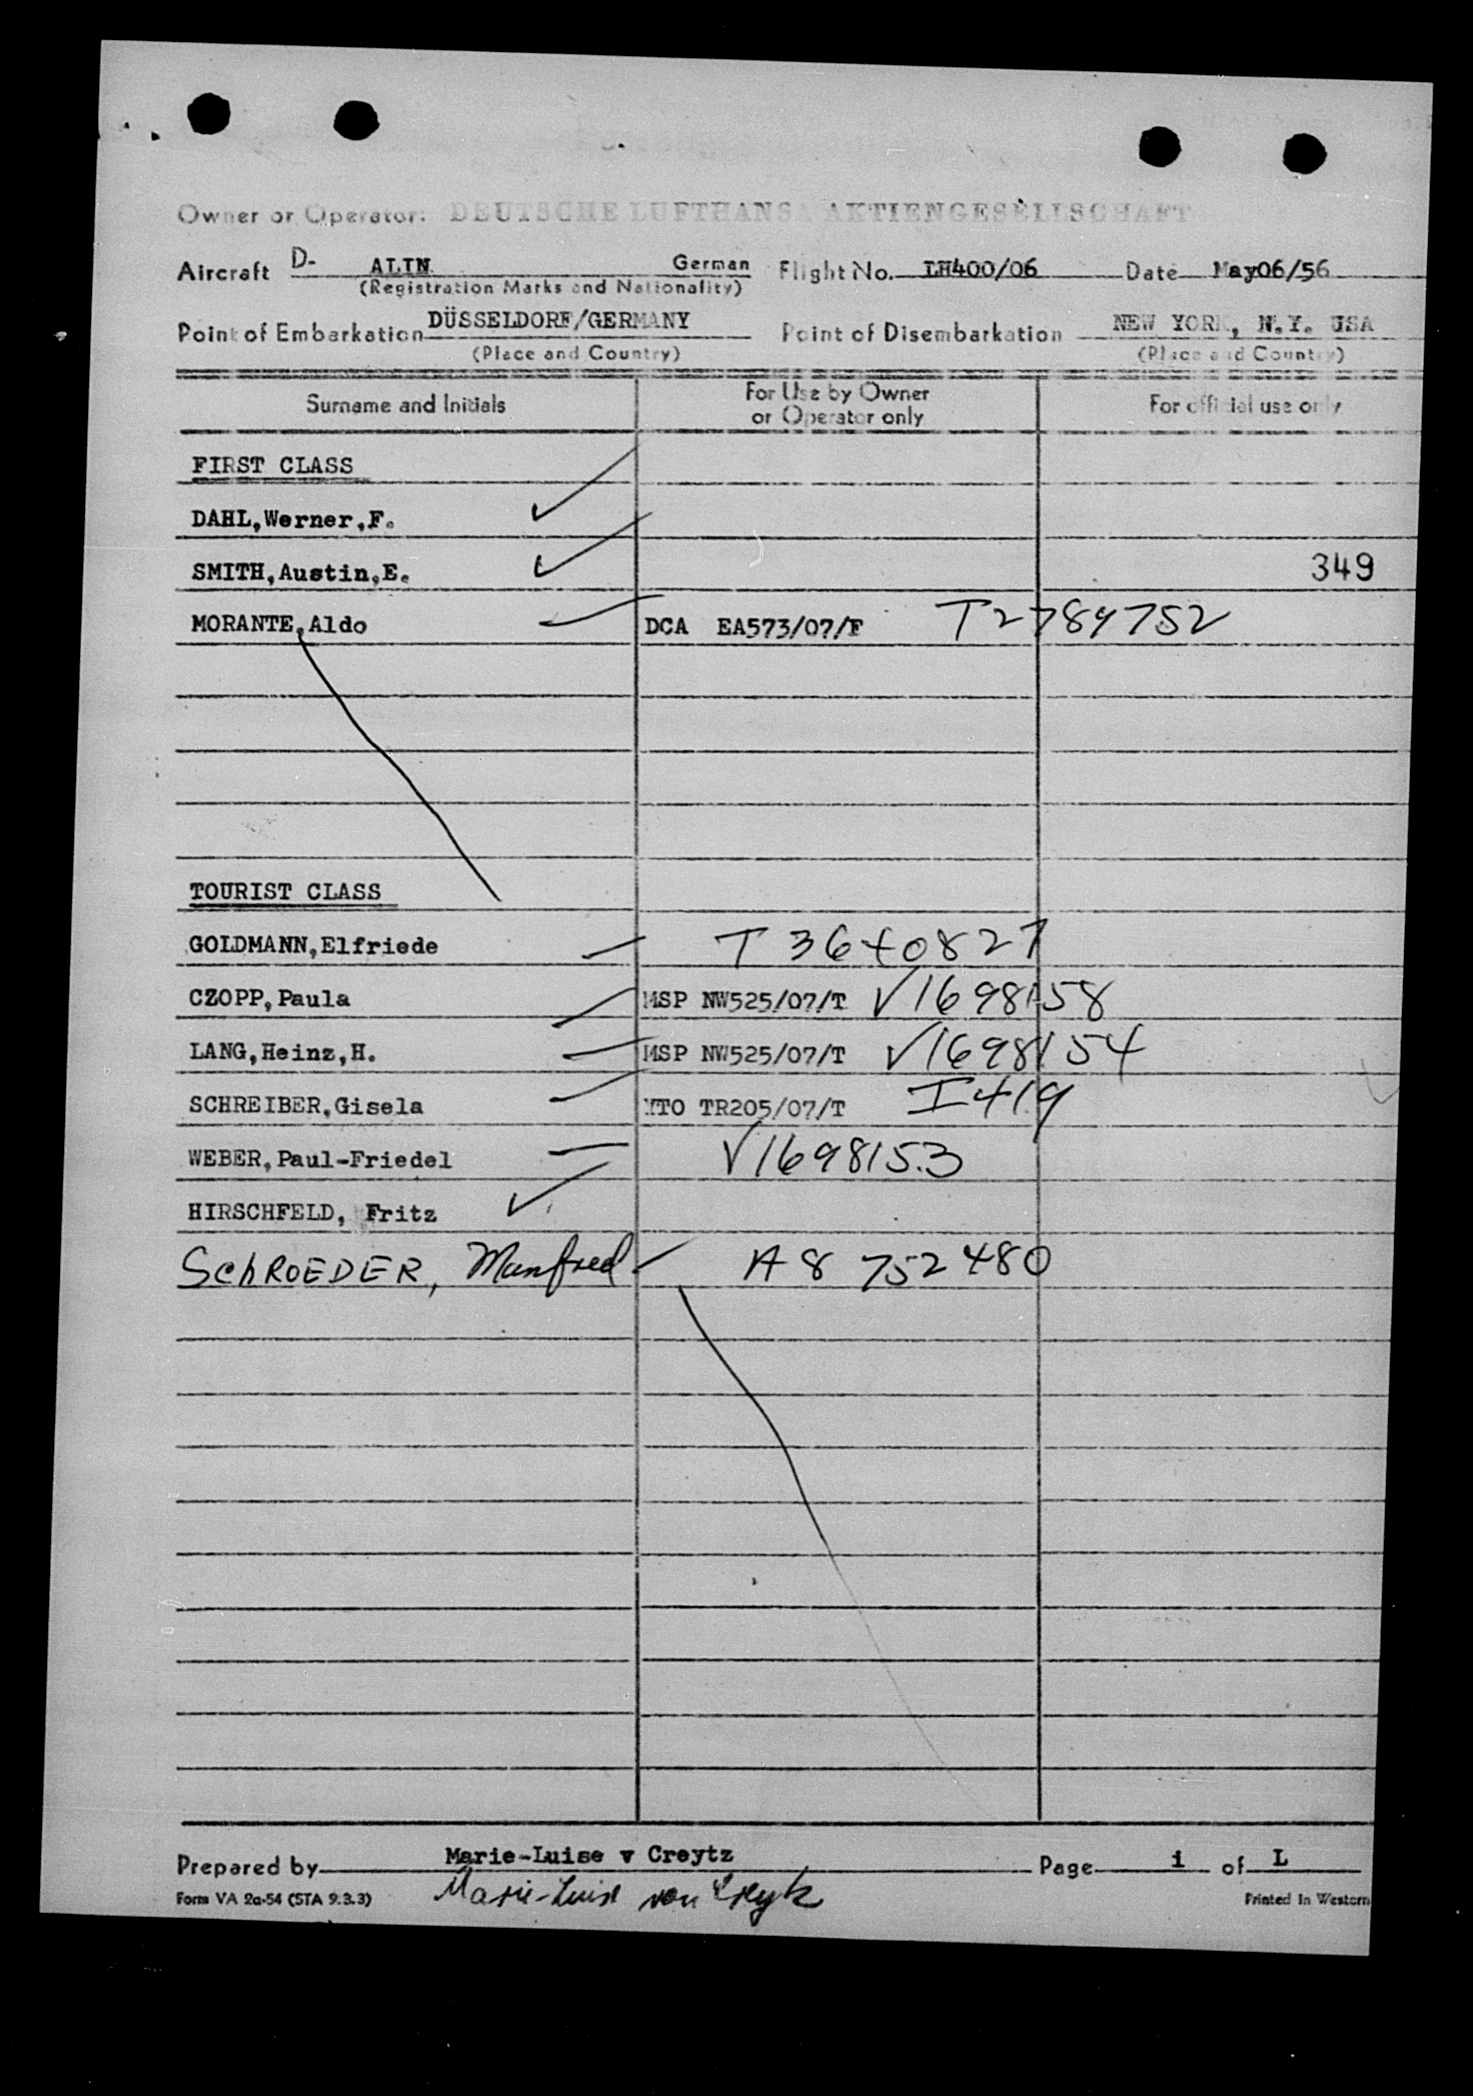 Owner or Operator: DEUTSCHE LUFTHANSA AKTIENGESELLSCHAFT
Aircraft D- ALIN German Flight No. LH400/06 Date May06/56
(Registration Marks and Nationality)
Point of Embarkation DÜSSELDORF/GERMANY Point of Disembarkation NEW YORK, N.Y. USA
(Place and Country) (Place and Country)
Surname and Initials For Use by Owner or Operator only For official use only
FIRST CLASS
DAHL,Werner,F.
SMITH,Austin,E. 349
MORANTE,Aldo DCA EA573/07/F T2784752
TOURIST CLASS
GOLDMANN,Elfriede T 3640827
CZOPP,Paula MSP NW525/07/T V1698158
LANG,Heinz,H. MSP NW525/07/T V1698154
SCHREIBER,Gisela YTO TR205/07/T I419
WEBER,Paul-Friedel V1698153
HIRSCHFELD, Fritz
SchROEDER, Manfred A8 752480
Prepared by Marie-Luise v Creytz Page 1 of L
Form VA 2a-54 (STA 9.3.3) Marie-Luise von Creytz Printed in Western